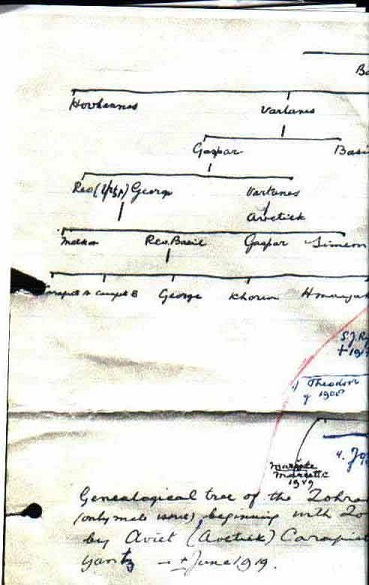 Ba
Hovhannes Vartanes
Gaspar Basi
Rev George Vartanes
Avetick
Rev. Basil Gaspar Simeon
Carapiet A Carapiet B George Khorin Hmayak
S.J.
Theodore
1908
4. Jo
Mariette C
1949
Genealogical tree of the Zohra
(only male issue) beginning with Zo
by Aviet (Avetick) Carapie
June 1919.